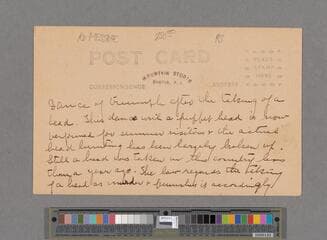 250
RJ
POST CARD
MOUNTAIN STUDIO
CORRESPONDENCE ADDRESS
PLACE
STAMP
HERE
Dance of triumph after the taking of a
head. This dance with a proffet head is now
performed for summer visitors & the actual
head hunting has been largely broken up.
Still a head was taken in this country less
than a year ago. The law regards the taking
of a head as murder & punishes it accordingly